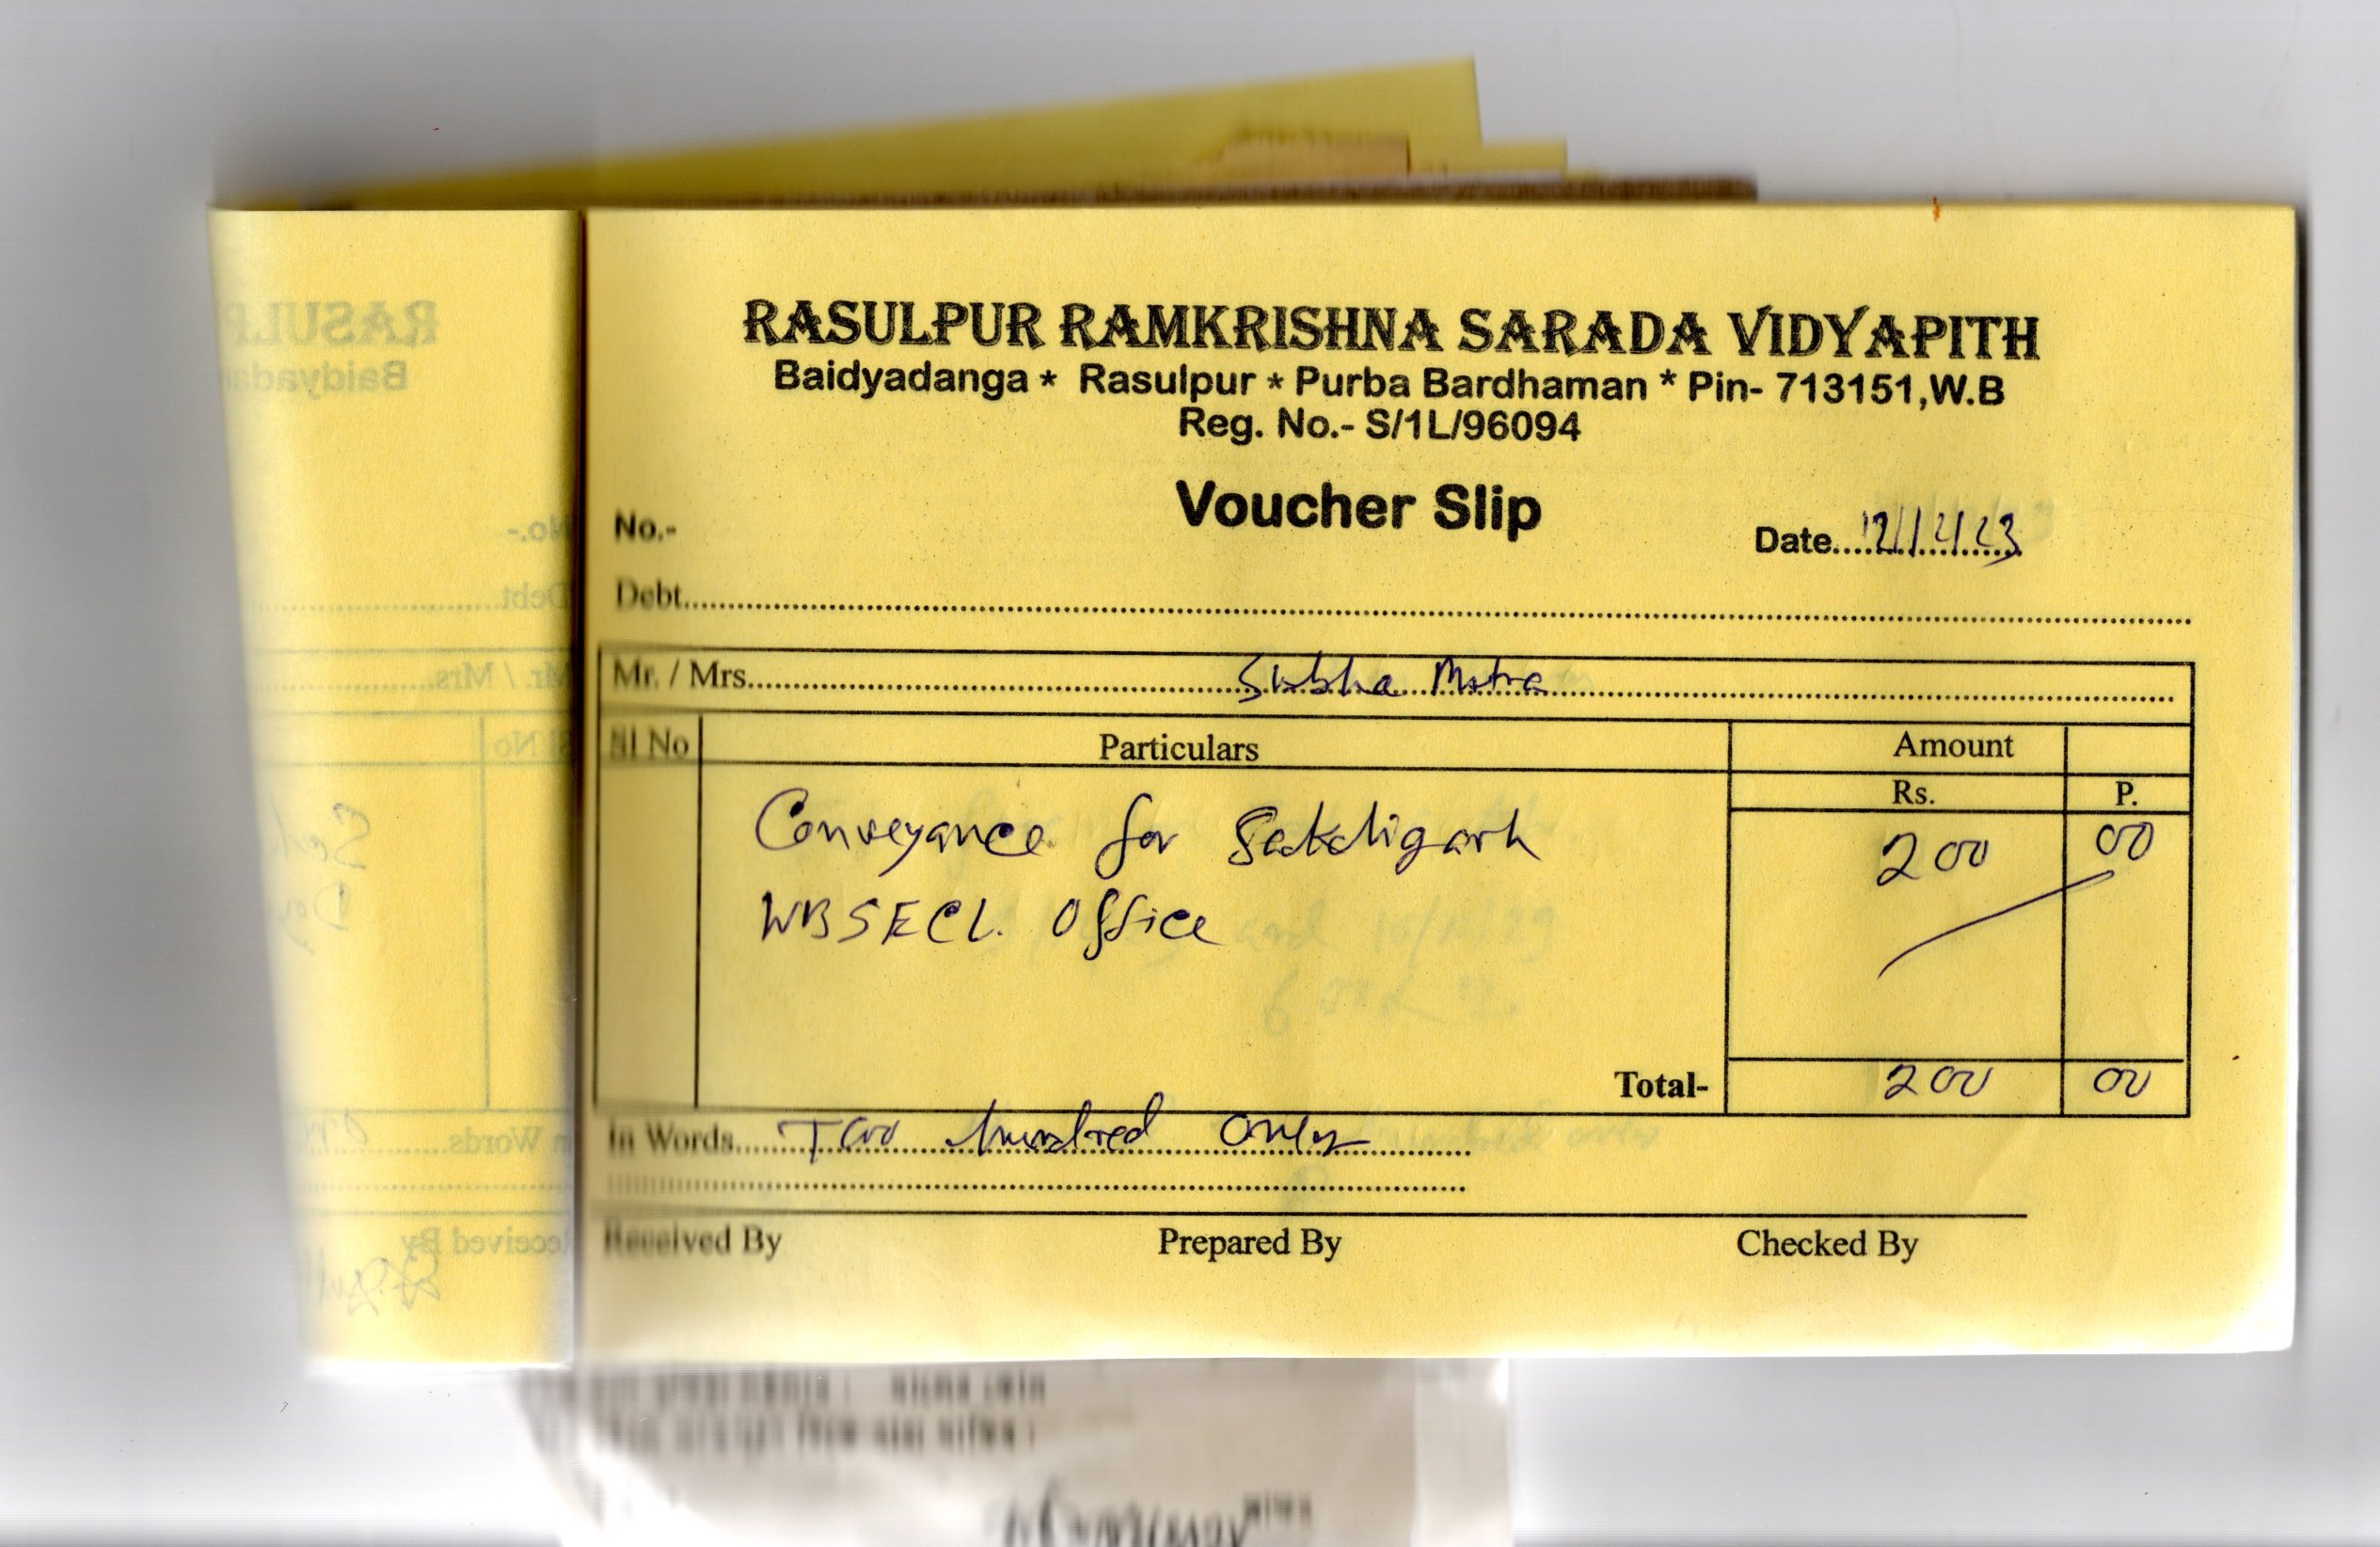 RASULPUR RAMKRISHNA SARADA VIDYAPITH
Baidyadanga * Rasulpur * Purba Bardhaman * Pin- 713151,W.B
Reg. No.- S/1L/96094
Voucher Slip
No.-
Date....
Debt....
Mr. / Mrs.... Subha Mitra
Sl No Particulars Amount
Rs. P.
Conveyance for 200 00
WBSECL. Office
Total- 200 00
In Words.... Two hundred Only
Received By Prepared By Checked By